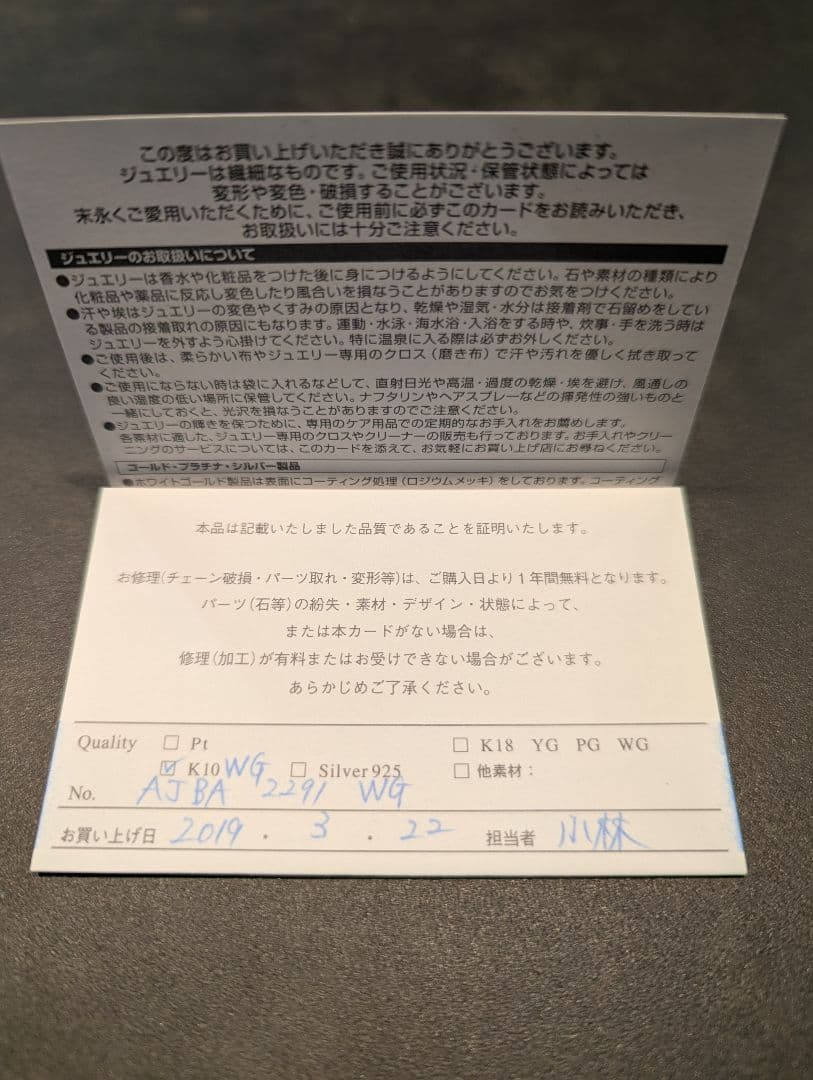 この度はお買い上げいただき誠にありがとうございます。
ジュエリーは繊細なものです。ご使用状況・保管状態によっては
変形や変色・破損することがございます。
末永くご愛用いただくために、ご使用前に必ずこのカードをお読みいただき、
お取扱いには十分ご注意ください。
ジュエリーのお取扱いについて
●ジュエリーは香水や化粧品をつけた後に身につけるようにしてください。石や素材の種類により
化粧品や薬品に反応し変色したり風合いを損なうことがありますのでお気をつけください。
●汗や埃はジュエリーの変色やくすみの原因となり、乾燥や湿気・水分は接着剤で石留めをしてい
る製品の接着取れの原因にもなります。運動・水泳・海水浴・入浴をする時や、炊事・手を洗う時は
ジュエリーを外すよう心掛けてください。特に温泉に入る際は必ずお外しください。
●ご使用後は、柔らかい布やジュエリー専用のクロス（磨き布）で汗や汚れを優しく拭き取って
ください。
●ご使用にならない時は袋に入れるなどして、直射日光や高温・過度の乾燥・埃を避け、風通しの
良い湿度の低い場所に保管してください。ナフタリンやヘアスプレーなどの揮発性の強いものと
一緒にしておくと、光沢を損なうことがありますのでご注意ください。
●ジュエリーの輝きを保つために、専用のケア用品での定期的なお手入れをお薦めします。
各素材に適した、ジュエリー専用のクロスやクリーナーの販売も行っております。お手入れやクリー
ニングのサービスについては、このカードを添えて、お気軽にお買い上げ店にお尋ねください。
ゴールド・プラチナ・シルバー製品
●ホワイトゴールド製品は表面にコーティング処理（ロジウムメッキ）をしております。コーティング
本品は記載いたしました品質であることを証明いたします。
お修理（チェーン破損・パーツ取れ・変形等）は、ご購入日より1年間無料となります。
パーツ（石等）の紛失・素材・デザイン・状態によって、
または本カードがない場合は、
修理（加工）が有料またはお受けできない場合がございます。
あらかじめご了承ください。
Quality □ Pt □ K18 YG PG WG
☑ K10 WG □ Silver925 □ 他素材：
No. AJBA 2291 WG
お買い上げ日 2019 . 3 . 22 担当者 小林